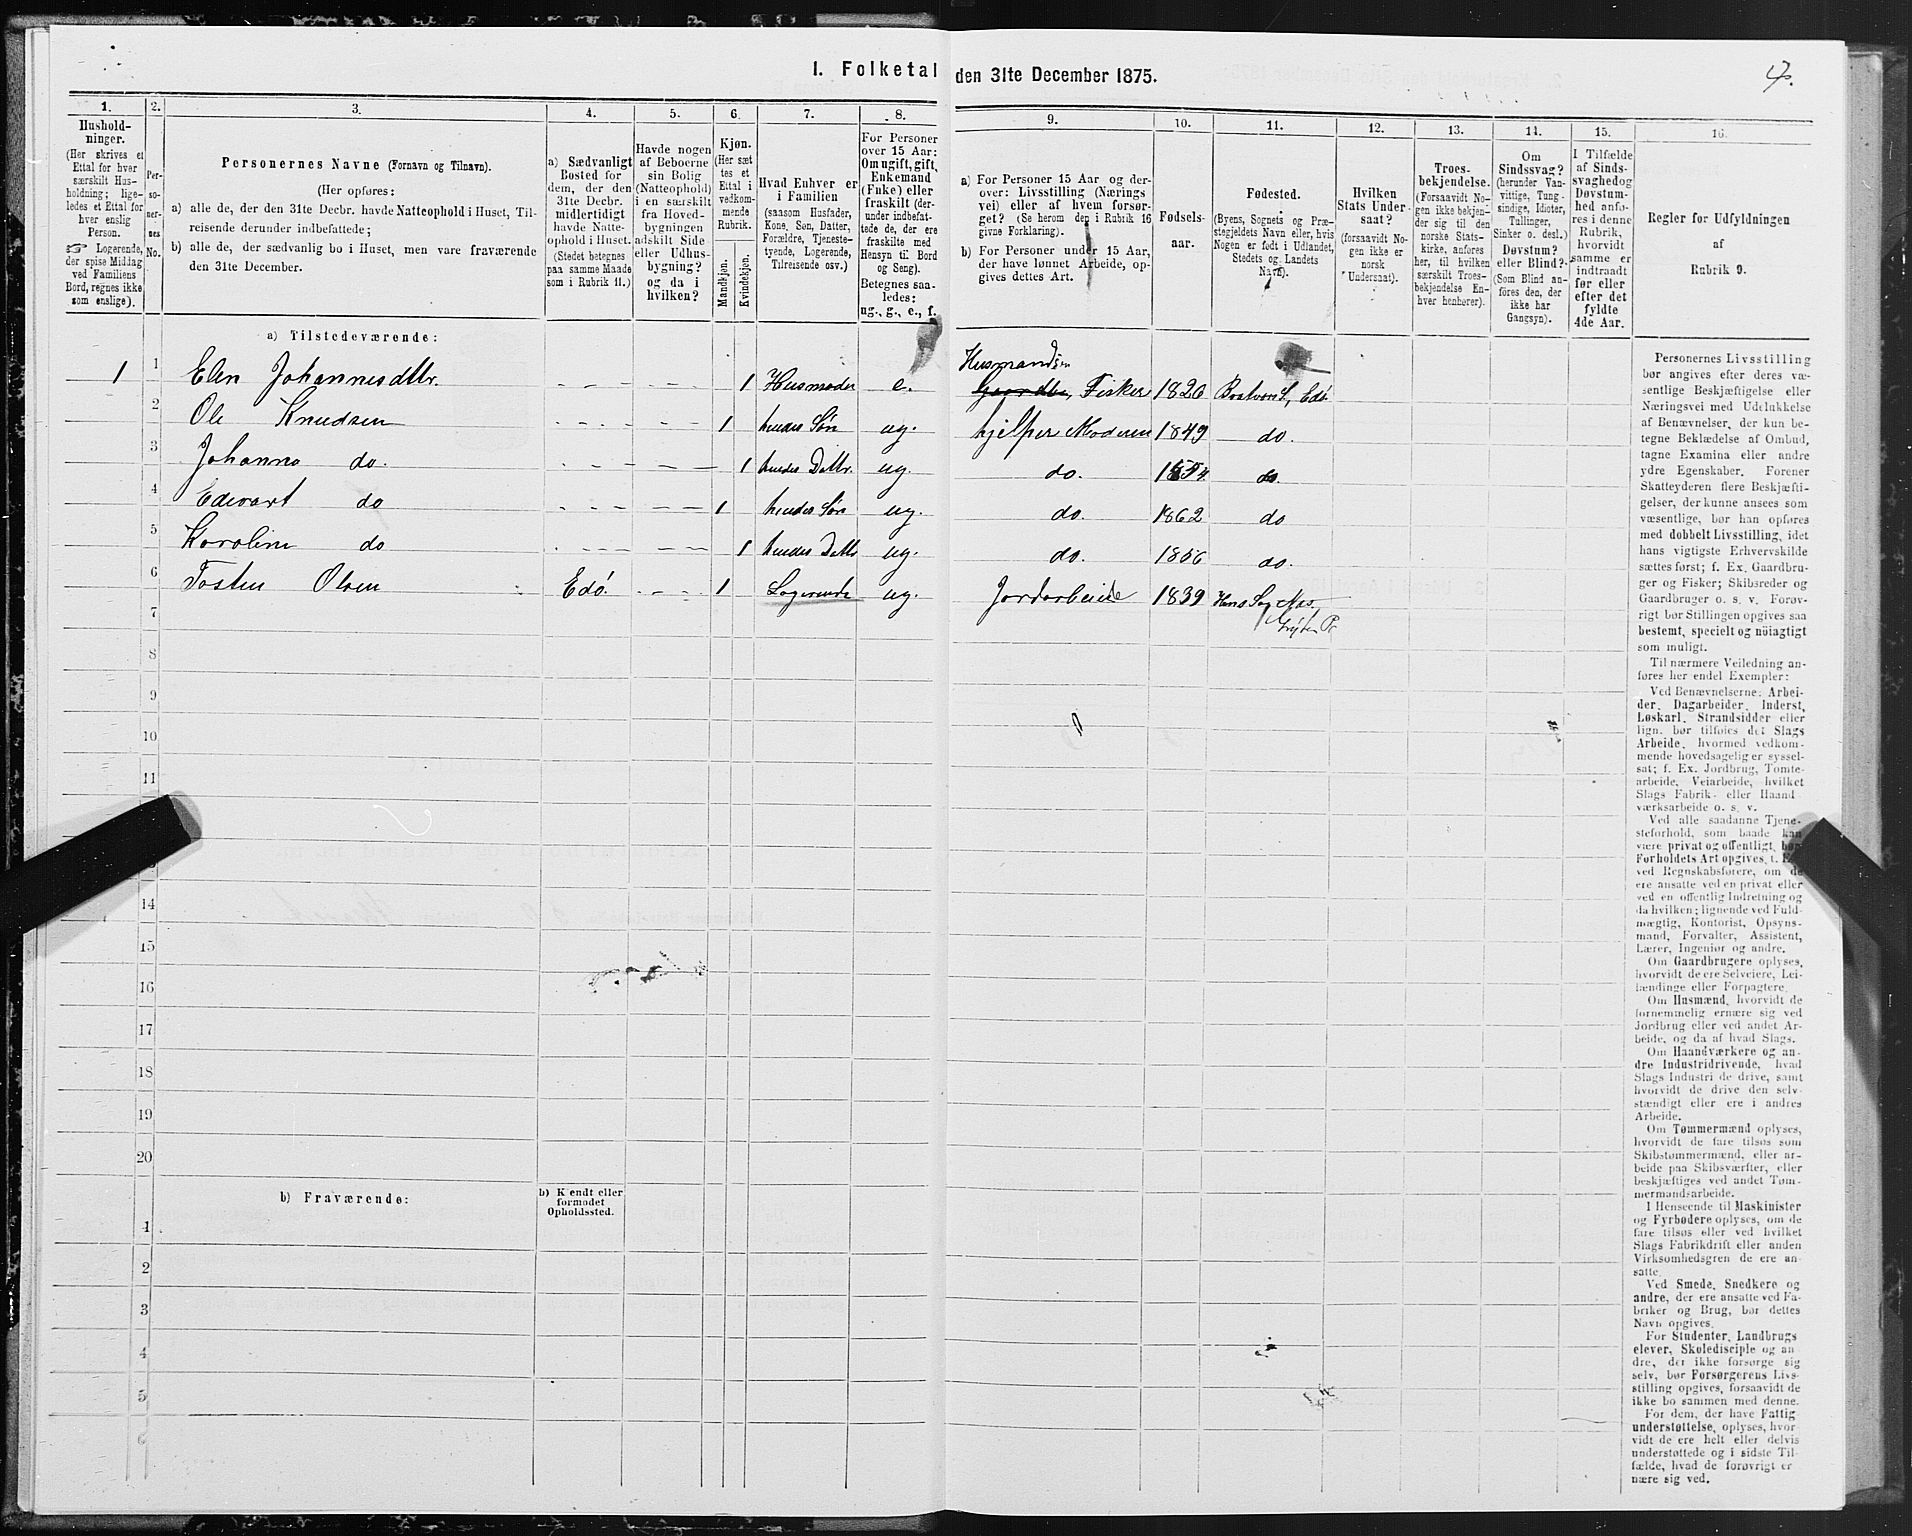 I. Folketal den 31te December 1875.
7.
1.
Hushold-
ninger.
(Her skrives et
Ettal for hver
særskilt Hus-
holdning; lige-
ledes et Ettal for
hver enslig
Person.
☞ Logerende,
der spise Middag
ved Familiens
Bord, regnes ikke
som enslige).
2.
Per-
so-
ner-
nes
No.
3.
Personernes Navne (Fornavn og Tilnavn).
(Her opføres:
a) alle de, der den 31te Decbr. havde Natteophold i Huset, Til-
reisende derunder indbefattede;
b) alle de, der sædvanlig bo i Huset, men vare fraværende
den 31te December.
4.
a) Sædvanligt
Bosted for
dem, der den
31te Decbr.
midlertidigt
havde Natte-
ophold i Huset.
(Stedet betegnes
paa samme Maade
som i Rubrik 11.)
5.
Havde nogen
af Beboerne
sin Bolig
(Natteophold)
i en særskilt
fra Hoved-
bygningen
adskilt Side
eller Udhus-
bygning?
og da i
hvilken?
6.
Kjøn.
(Her sæt
tes et
Ettal i
vedkom-
mende
Rubrik.
Mandkjøn.
Kvindekjøn.
7.
Hvad Enhver er
i Familien
(saasom Husfader,
Kone, Søn, Datter,
Forældre, Tjeneste-
tyende, Logerende,
Tilreisende osv.)
8.
For Personer
over 15 Aar:
Om ugift, gift,
Enkemand
(Enke) eller
fraskilt (der-
under indbefat-
tede de, der ere
fraskilte med
Hensyn til Bord
og Seng).
Betegnes saa-
ledes:
ug., g., e., f.
9.
a) For Personer 15 Aar og der-
over: Livsstilling (Nærings
vei) eller af hvem forsør-
get? (Se herom den i Rubrik 16
givne Forklaring).
b) For Personer under 15 Aar,
der have lønnet Arbeide, op-
gives dettes Art.
10.
Fødsels-
aar.
11.
Fødested.
(Byens, Sognets og Præ-
stegjeldets Navn eller, hvis
Nogen er født i Udlandet,
Stedets og Landets
Navn).
12.
Hvilken
Stats Under-
saat?
(forsaavidt No-
gen ikke er
norsk
Undersaat).
13.
Troes-
bekjendelse.
(Forsaavidt No-
gen ikke bekjen-
der sig til den
norske Stats-
kirke, anføres
her, til hvilken
særskilt Troes-
bekjendelse En-
hver henhører).
14.
Om
Sindssvag?
(herunder Van-
vittige, Tung-
sindige, Idioter,
Tullinger,
Sinker o. desl.)
Døvstum?
eller Blind?
(Som Blind an-
føres den, der
ikke har
Gangsyn).
15.
I Tilfælde
af Sinds-
svaghed og
Døvstum-
hed anfø-
res i denne
Rubrik,
hvorvidt
samme er
indtraadt
før eller
efter det
fyldte
4de Aar.
16.
Regler for Udfyldningen
af
Rubrik 9.
a) Tilstedeværende:
1 1 Elen Johannesdttr. 1 Husmoder e. Husmandsen Fisker 1820 Bratvær S., Edø
2 Ole Knudsen 1 hendes Søn ug. hjelper Moderen 1849 do.
3 Johanna do. 1 hendes Dattr. ug. do. 1854 do.
4 Edevart do 1 hendes Søn ug. do. 1862 do
5 Karoline do 1 hendes Dattr ug. do. 1856 do.
6 Tosten Olsen Edø. 1 Logerende ug. Jordarbeide 1839 Hens Sog Næs,
Grytten Pr
7
8
9
10
11
14
15
16
17
18
19
20
b) Fraværende:
b) Kjendt eller
formodet
Opholdssted.
1
2
3
4
5
6
Personernes Livsstilling
bør angives efter deres væ-
sentlige Beskjæftigelse eller
Næringsvei med Udelukkelse
af Benævnelser, der kun be-
tegne Beklædelse af Ombud,
tagne Examina eller andre
ydre Egenskaber. Forener
Skatteyderen flere Beskjæfti-
gelser, der kunne ansees som
væsentlige, bør han opføres
med dobbelt Livsstilling, idet
hans vigtigste Erhvervskilde
sættes først; f. Ex. Gaardbru-
ger og Fisker; Skibsreder og
Gaardbruger o. s. v. Forøv-
rigt bør Stillingen opgives saa
bestemt, specielt og nøiagtigt
som muligt.
Til nærmere Veiledning an-
føres her endel Exempler:
Ved Benævnelserne: Arbei-
der, Dagarbeider, Inderst,
Løskarl, Strandsidder eller
lign. bør tilføies det Slags
Arbeide, hvormed vedkom-
mende hovedsagelig er syssel-
sat; f. Ex. Jordbrug, Tømte-
arbeide, Veiarbeide, hvilket
Slags Fabrik- eller Haand-
værksarbeide o. s. v.
Ved alle saadanne Tjene-
steforhold, som baade kan
være privat og offentligt, bør
Forholdets Art opgives, f. Ex.
ved Regnskabsførere, om de
ere ansatte ved en privat eller
ved en offentlig Indretning og
da hvilken; lignende ved Fuld-
mægtig, Kontorist, Opsyns-
mand, Forvalter, Assistent,
Lærer, Ingeniør og andre.
Om Gaardbrugere oplyses,
hvorvidt de ere Selveiere, Lei-
lændinge eller Forpagtere.
Om Husmænd, hvorvidt de
fornemmelig ernære sig ved
Jordbrug eller ved andet Ar-
beide, og da af hvad Slags.
Om Haandværkere og an-
dre Industridrivende, hvad
Slags Industri de drive, samt
hvorvidt de drive den selv-
stændigt eller ere i andres
Arbeide.
Om Tømmermænd oplyses,
hvorvidt de fare tilsøs som
Skibstømmermænd, eller ar-
beide paa Skibsværfter, eller
beskjæftiges ved andet Tøm-
mermandsarbeide.
I Henseende til Maskinister
og Fyrbødere oplyses, om de
fare tilsøs eller ved hvilket
Slags Fabrikdrift eller anden
Virksomhedsgren de ere an-
satte.
Ved Smede, Snedkere og
andre, der ere ansatte ved Fa-
briker og Brug, bør dettes
Navn opgives.
For Studenter, Landbrugs
elever, Skoledisciple og an
dre, der ikke forsørge sig
selv, bør Forsørgerens Livs-
stilling opgives, forsaavidt de
ikke bo sammen med denne.
For dem, der have Fattig
understøttelse, oplyses, hvor-
vidt de ere helt eller delvis
understøttede og i sidste Til-
fælde, hvad de forøvrigt er
nære sig ved.